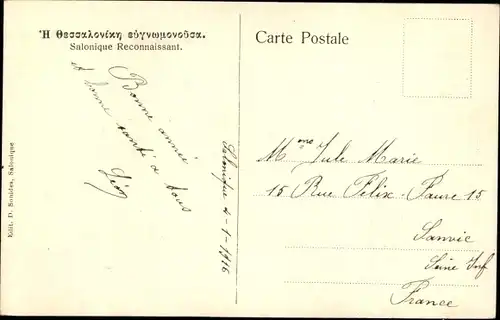 Ἡ Θεσσαλονίκη εὐγνωμονοῦσα.
Salonique Reconnaissant.
Carte Postale
Bonne année
et bonne santé à tous
Léon
Salonique 4-1-1916
Edit. D. Salonique
Mme Jule Marie
15 Rue Félix-Faure 15
Sanvic
Seine Inf
France